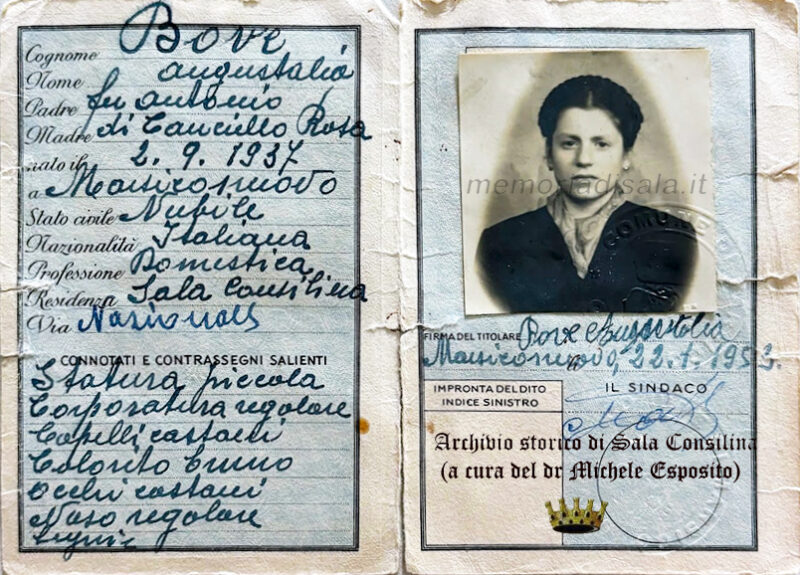 Cognome Bove
Nome Angustalia
Padre fu Antonio
Madre di Cancillo Rosa
nato il 2.9.1937
a Marsiconuovo
Stato civile Nubile
Nazionalità Italiana
Professione Domestica
Residenza Sala Consilina
Via Nazionale
CONNOTATI E CONTRASSEGNI SALIENTI
Statura piccola
Corporatura regolare
Capelli castani
Colorito bruno
Occhi castani
Naso regolare
memoriadisala.it
COMUNE
FIRMA DEL TITOLARE Bove Augustalia
Marsiconuovo, 22.1.1953.
IMPRONTA DEL DITO
INDICE SINISTRO
IL SINDACO
Archivio storico di Sala Consilina
(a cura del dr Michele Esposito)